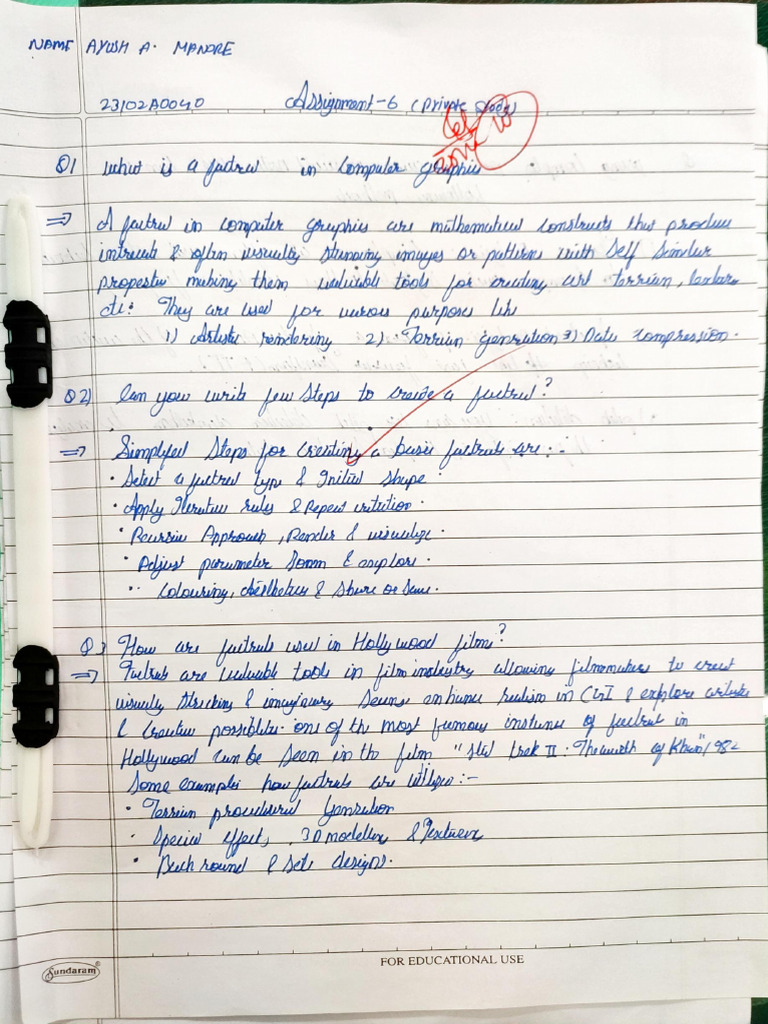 NAME AYUSH A. MANORE
23102A0040 Assignment-6 (Private Study)
10
Q1 What is a factral in Computer Graphics
⇒ A factral in computer graphics are mathematical constructs that produce
intricate & often visually stunning images or patterns with Self Similar
properties making them valuable tools for creating art terrian,
etc. They are used for various purposes like
1) Artistic rendering 2) Terrian genration 3) Data compression.
Q2) Can you write few Steps to create a factral?
⇒ Simplyfed Steps for Creating a basic factrals are:-
• Select a factral type & Initial shape.
• Apply Iterative rules & Repeat
• Recursive Approach, Render & visualize.
• Adjust parameter & explore.
•• Colouring, Aesthetics & Share or Save.
Q3 How are factrals used in Hollywood films?
⇒ Factrals are valuable tools in film industry allowing filmmakers to creat
visually & imaginary enhance realism in CGI & explore
& Creative possiblites. one of the most famous instance of factral in
Hollywood can be seen in the film "Star trek II: The wrath of Khan" 1982
Some examples how factrals are utilize:-
• Terrian procedural Genration
• Special effects, 3D modelling & Textures
• Back round & Sets designs.
FOR EDUCATIONAL USE
Sundaram